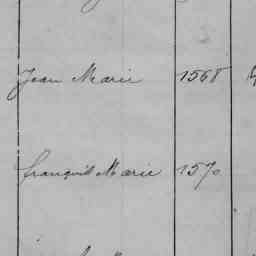 Jean Marie 1568
françois Marie 1570